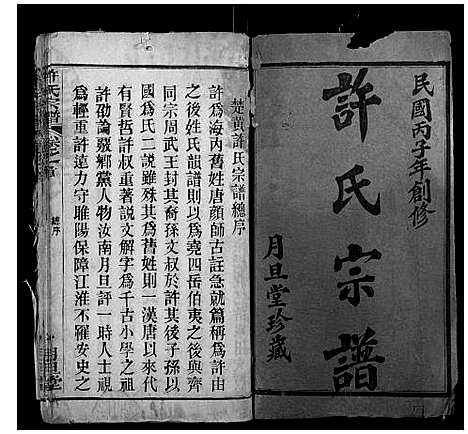 民國丙子年創修
許氏宗譜
月旦堂珍藏
楚黃許氏宗譜總序
許為海內舊姓唐顏師古註急就篇稱為許由
之後姓氏韻譜則以為堯四岳伯夷之後與齊
同宗周武王封其裔孫文叔於許其後子孫以
國為氏二說雖殊其為舊姓則一漢唐以來代
有賢哲許叔重著說文解字為千古小學之祖
許劭論覈鄉黨人物汝南月旦評一時人士視
為輕重許遠力守睢陽保障江淮不罹安史之
許氏宗譜
總序
月旦堂